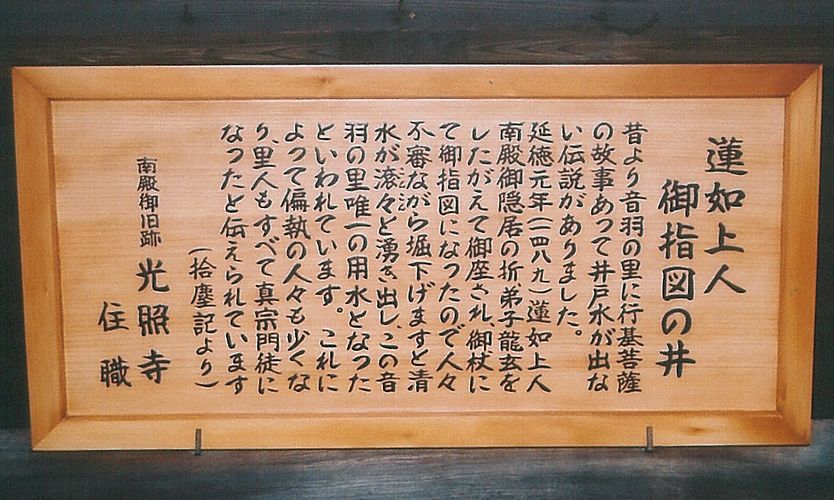 蓮如上人
御指図の井
昔より音羽の里に行基菩薩
の故事あって井戸水が出な
い伝説がありました。
延徳元年(一四八九)蓮如上人
南殿御隠居の折、弟子龍玄を
したがえて御座され、御杖に
て御指図になったので人々
不審ながら堀下げますと清
水が滾々と湧き出し、この音
羽の里唯一の用水となった
といわれています。これに
よって偏執の人々も少くな
り、里人もすべて真宗門徒に
なったと伝えられています
(拾塵記より)
南殿御旧跡 光照寺
住職